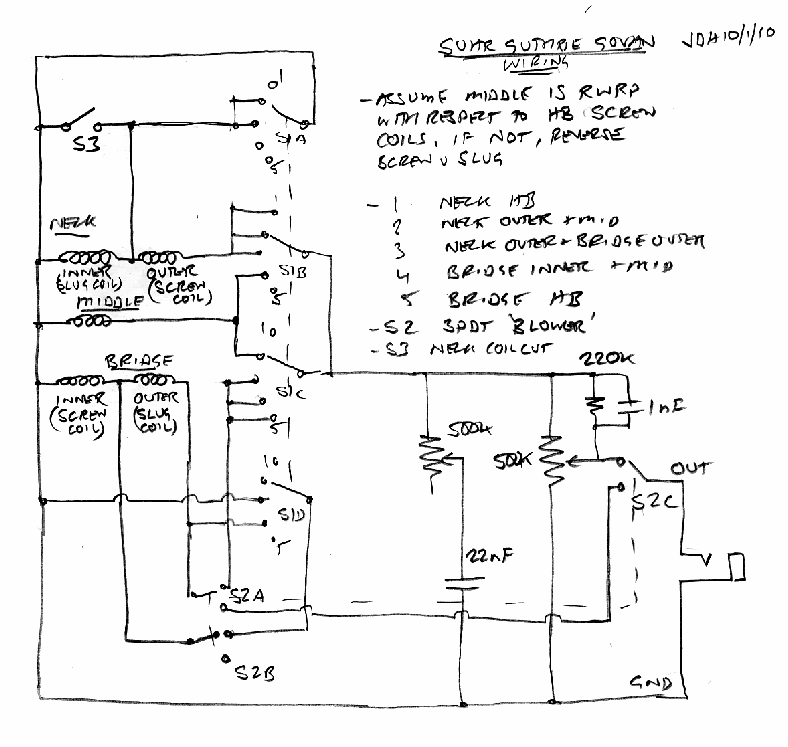 SUHR GUTHRIE GOVAN JDH 10/1/10
WIRING
- ASSUME MIDDLE IS RWRP
WITH RESPECT TO HB (SCREW
COILS, IF NOT, REVERSE
SCREW & SLUG
- 1 NECK HB
2 NECK OUTER + MID
3 NECK OUTER + BRIDGE OUTER
4 BRIDGE INNER + MID
5 BRIDGE HB
- S2 3PDT 'BLOWER'
- S3 NECK COIL CUT
S3
1
S1A
5
NECK
INNER
(SLUG COIL)
OUTER
(SCREW
COIL)
S1B
5
MIDDLE
1
S1C
5
BRIDGE
INNER
(SCREW
COIL)
OUTER
(SLUG
COIL)
1
S1D
5
S2A
S2B
220K
1nF
500K
500K
22nF
OUT
S2C
GND